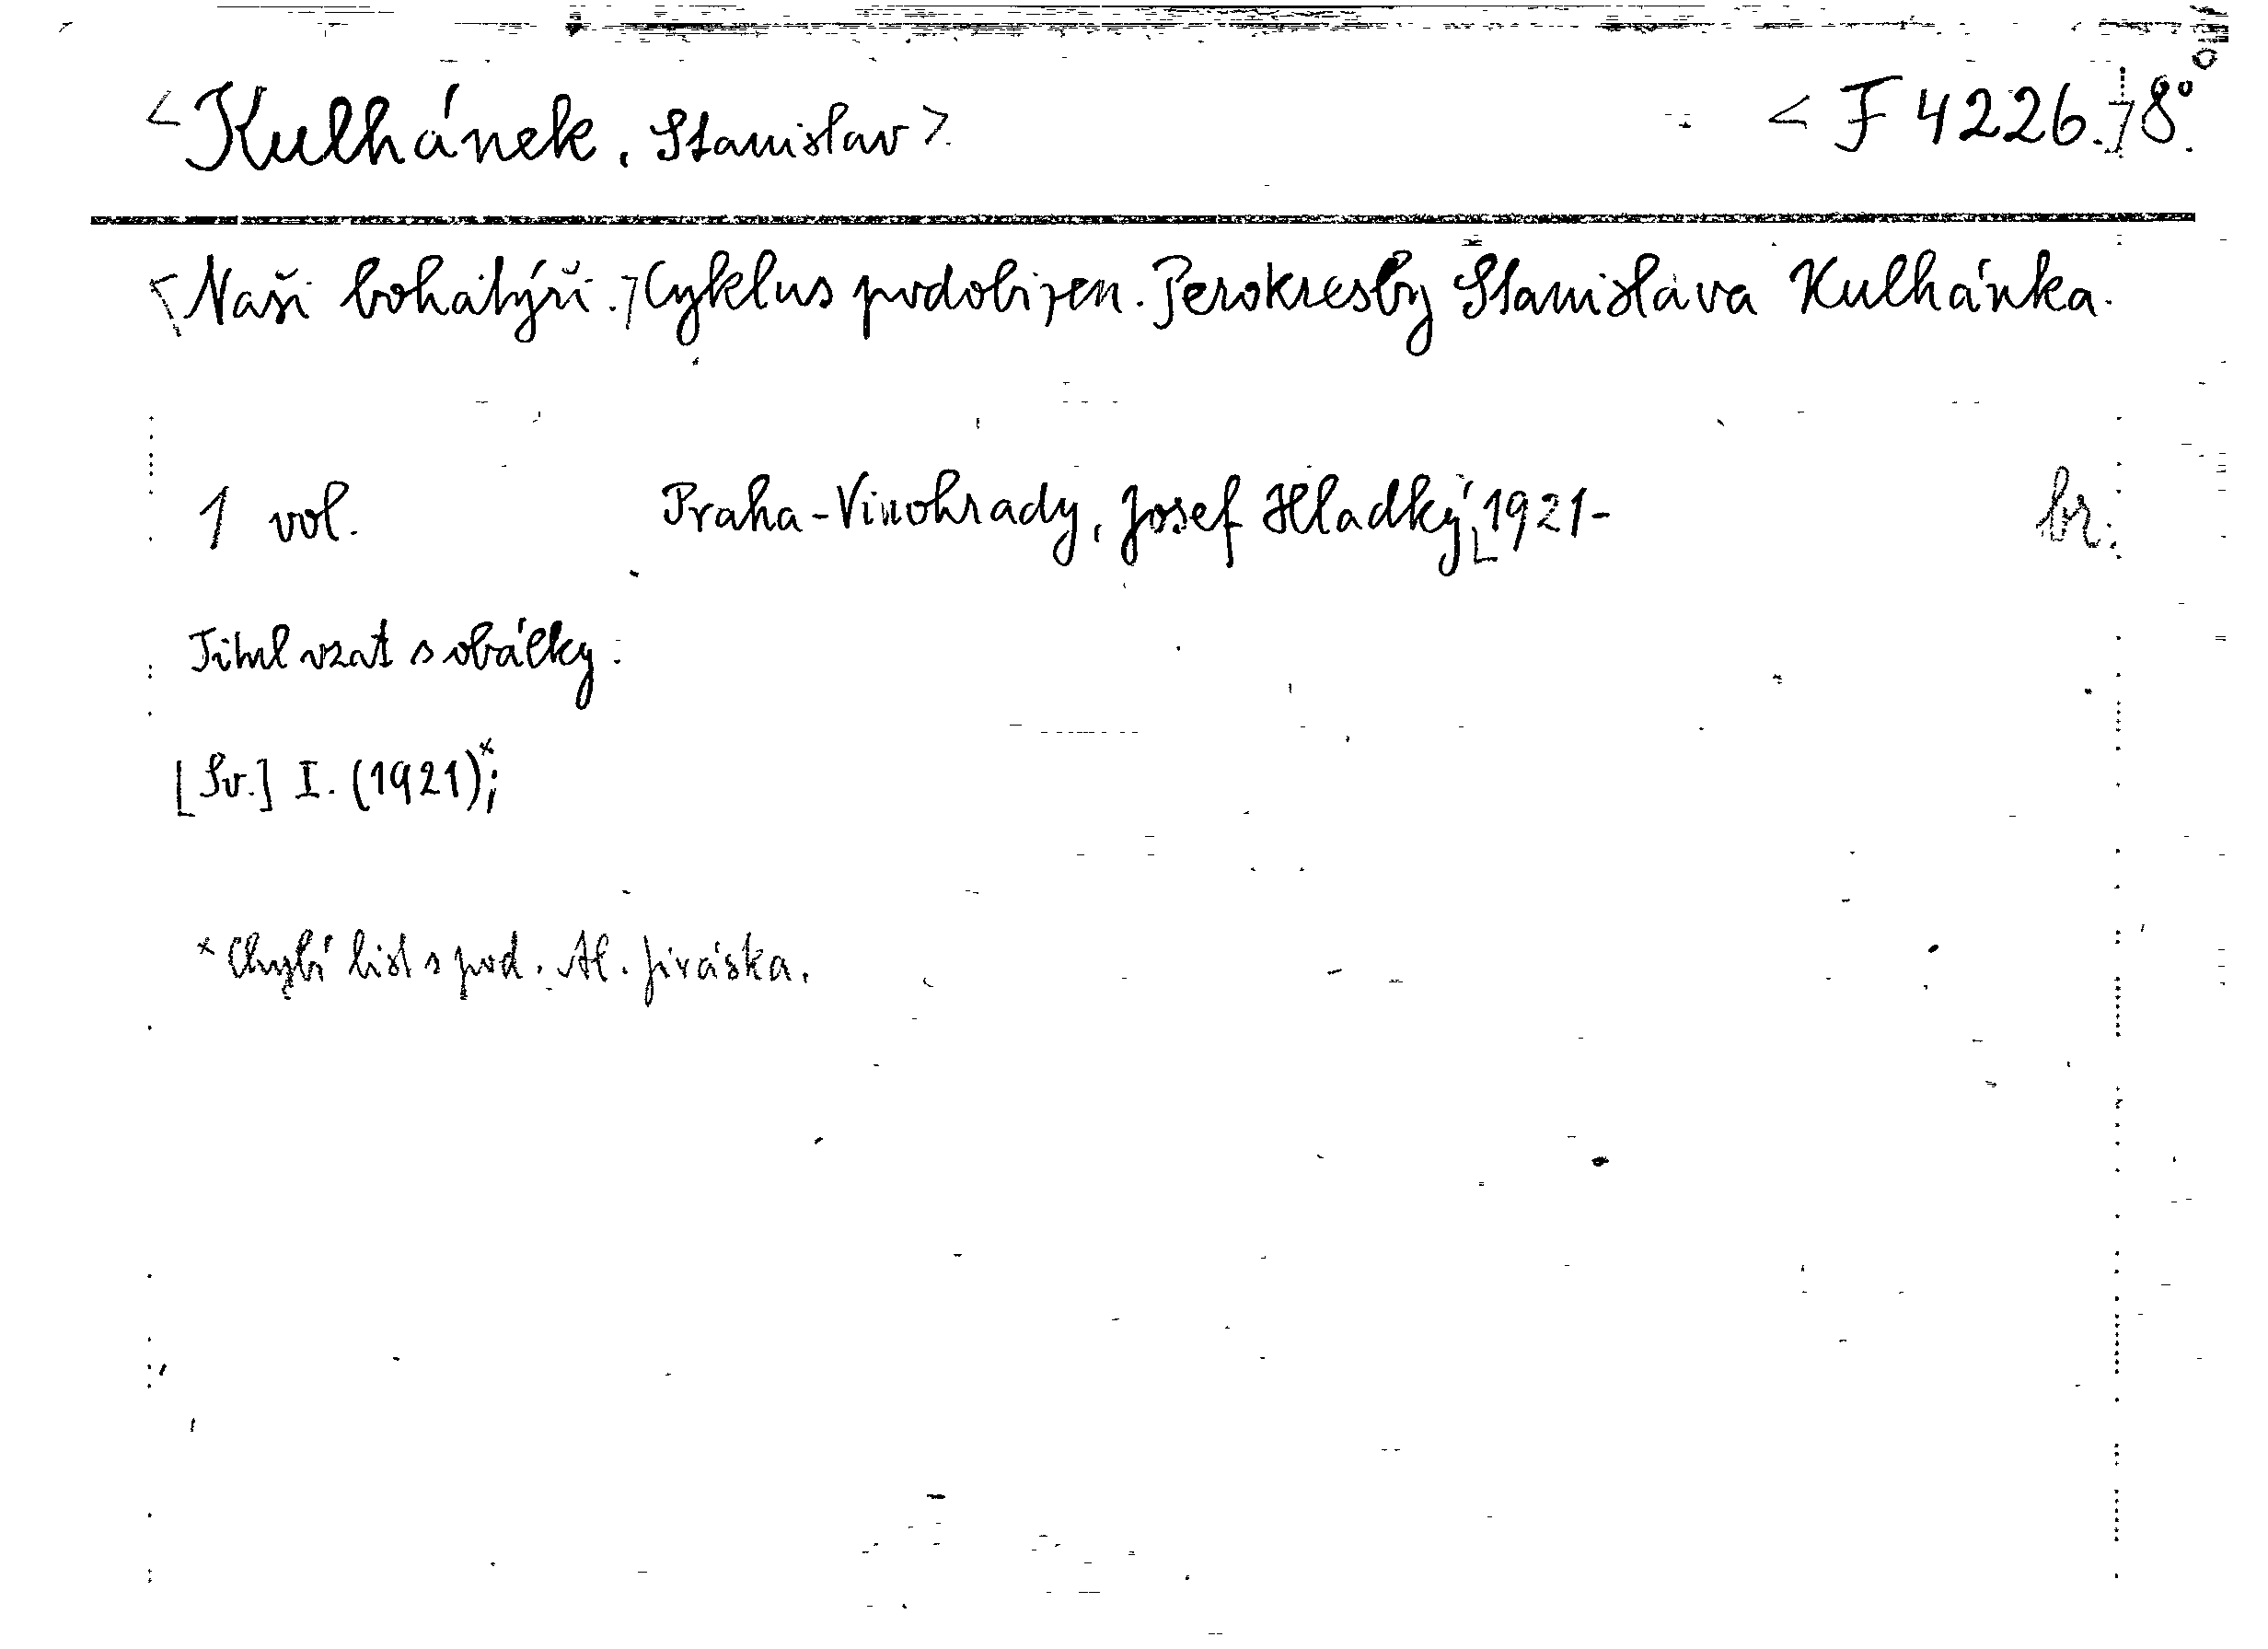 <Kulhánek, Stanislav> <F 4226.78°
Naši bohatýři. Cyklus podobizen. Perokresby Stanislava Kulhánka.
1 vol. Praha-Vinohrady, Josef Hladký, 1921- br.
Titul vzat s obálky.
[Sv.] I. (1921)*;
* Chybí list s pod. Al. Jiráska.